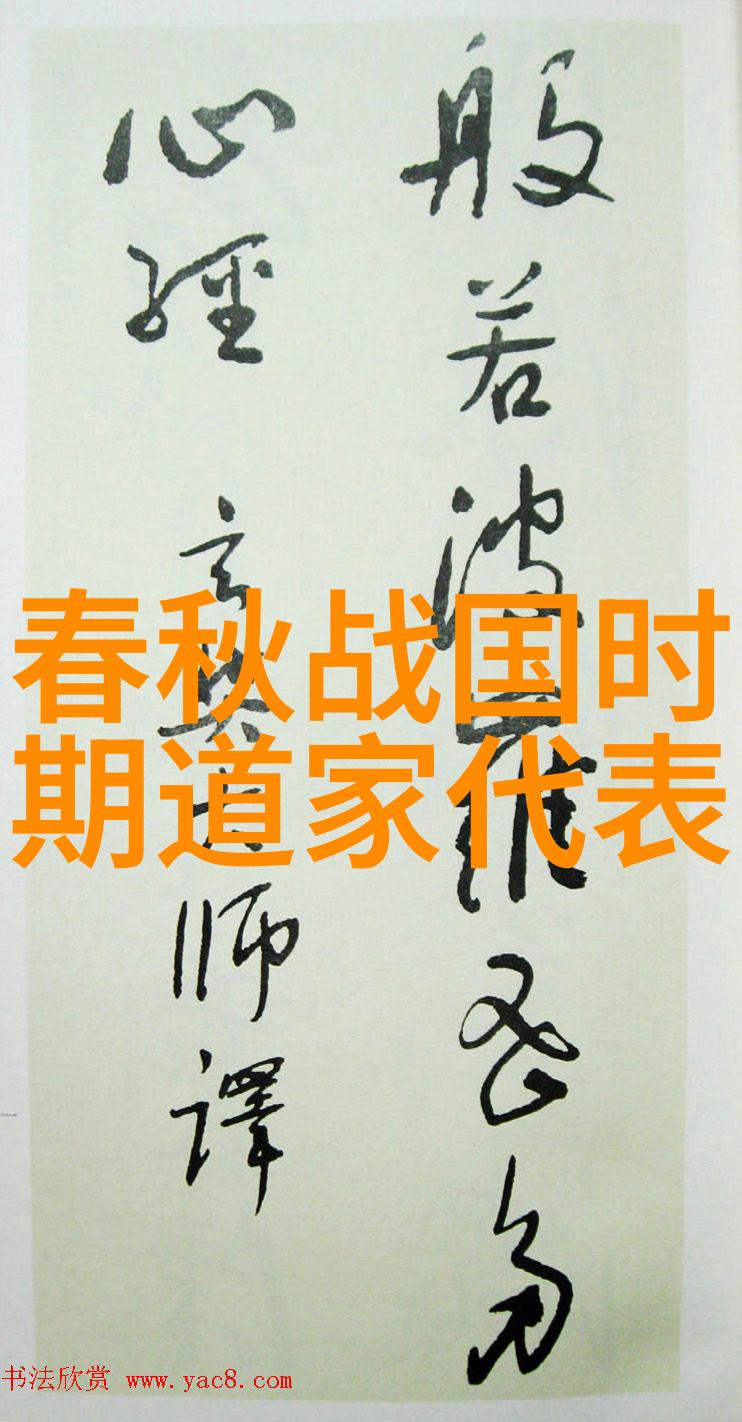 般若波羅密多
心經 玄奘大師譯
春秋战国时
期道家代表
书法欣赏 www.yac8.com